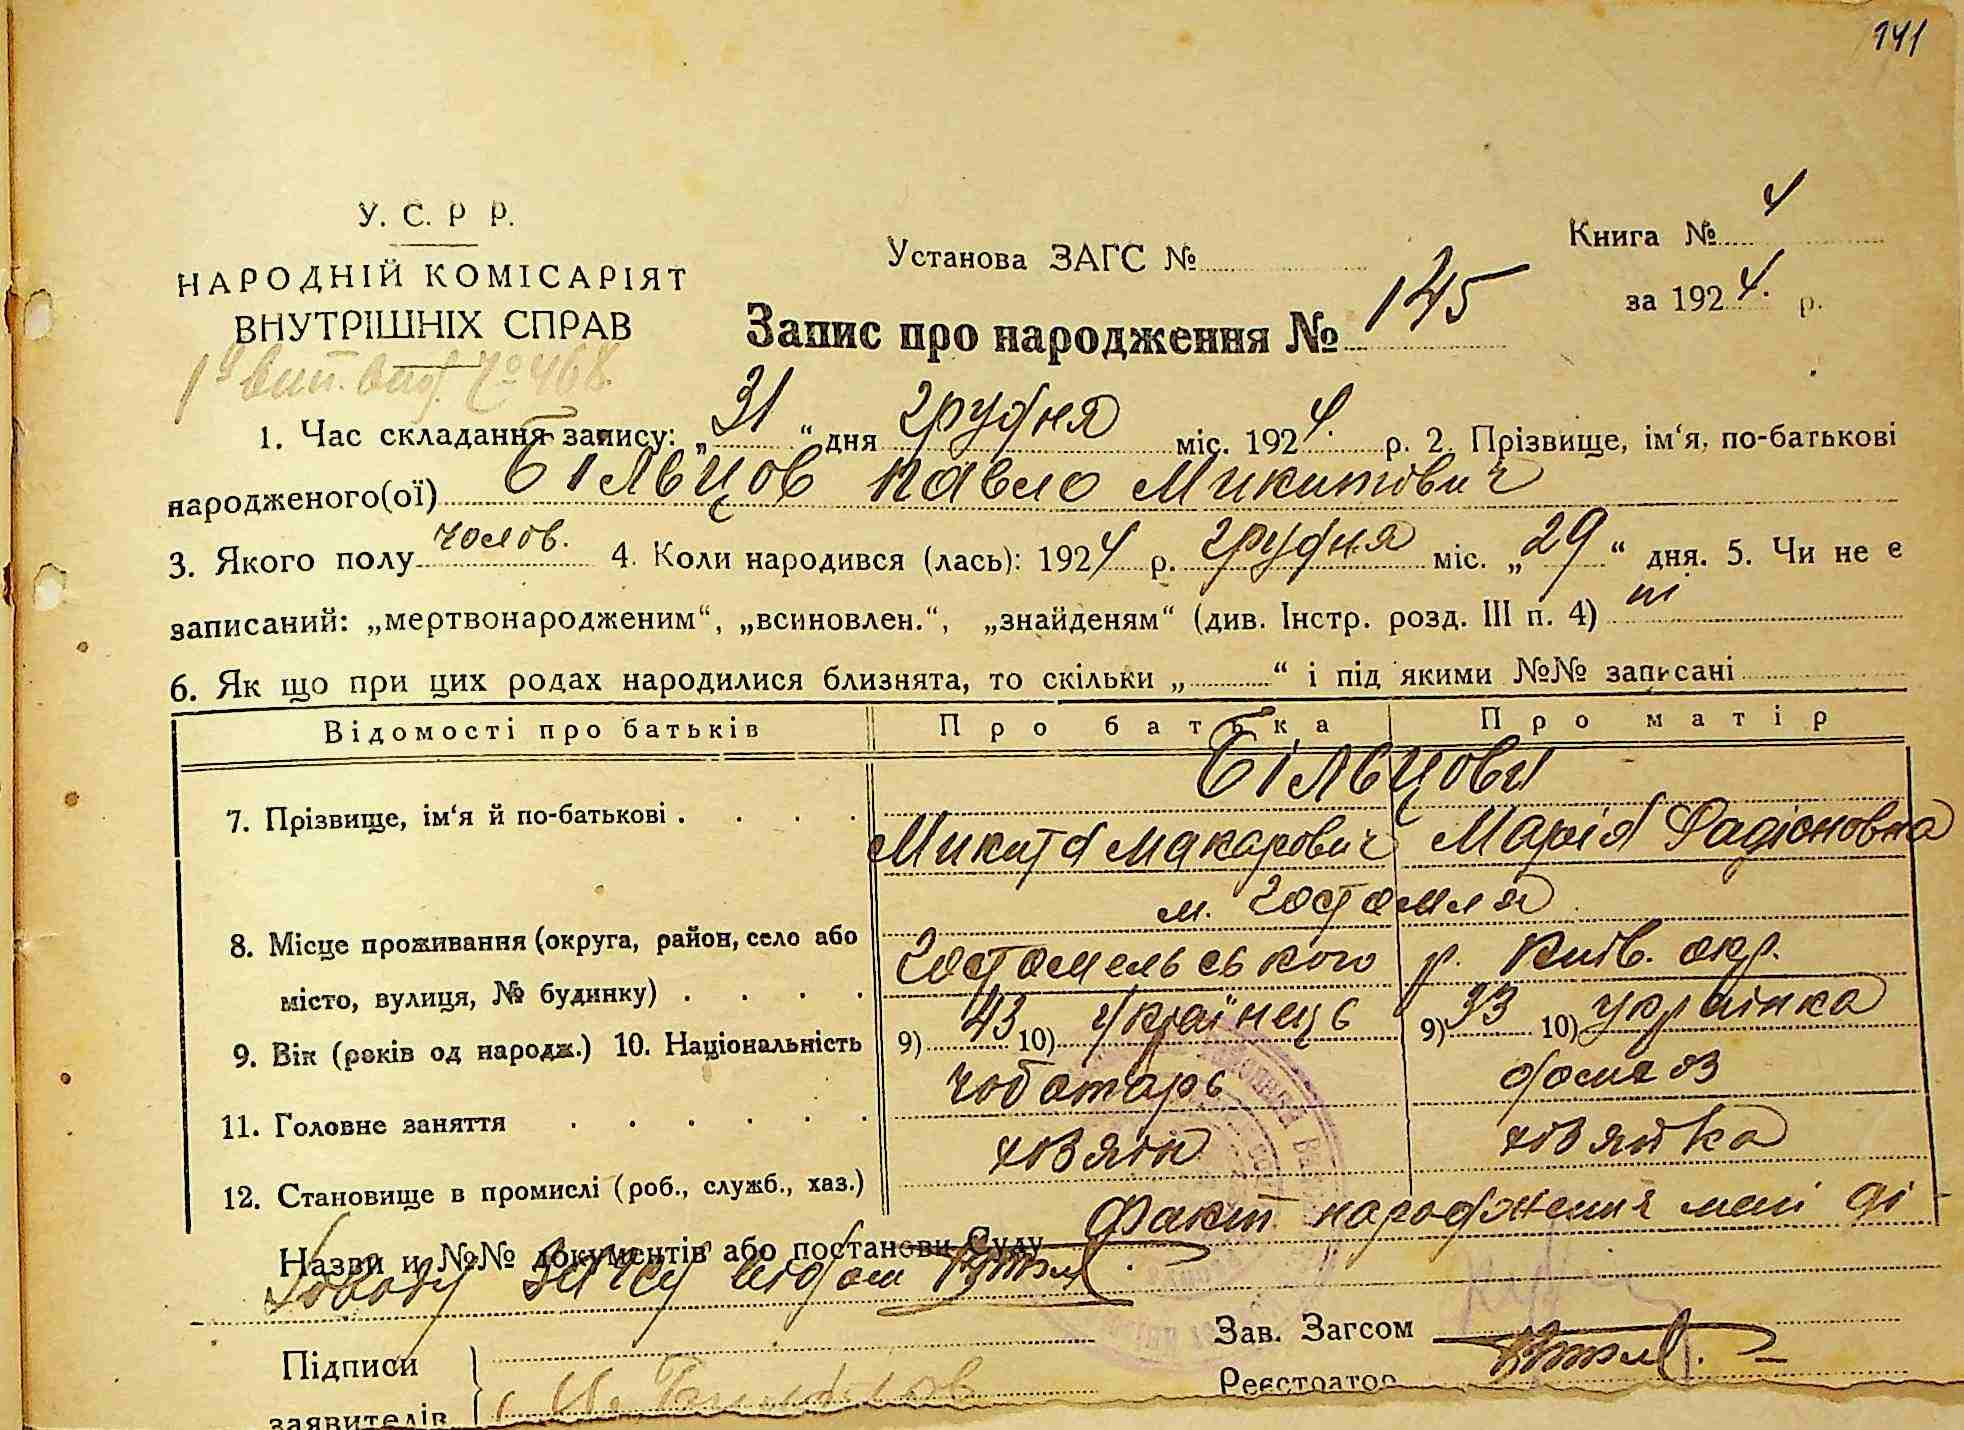 141
У. С. Р Р.
НАРОДНІЙ КОМІСАРІЯТ
ВНУТРІШНІХ СПРАВ
Установа ЗАГС №
Книга № 4
за 1924. р.
Запис про народження № 145
№ 468
1. Час складання запису: „ 31 “ дня грудня міс. 1924. р. 2. Прізвище, ім‘я, по-батькові
народженого(ої) Більцов Павло Микитович
3. Якого полу чолов. 4. Коли народився (лась): 1924 р. грудня міс. „ 29 “ дня. 5. Чи не є
записаний: „мертвонародженим“, „всиновлен.“, „знайденям“ (див. Інстр. розд. III п. 4) ні
6. Як що при цих родах народилися близнята, то скільки „ “ і під якими №№ записані
Відомості про батьків Про батька Про матір
Більцови
7. Прізвище, ім‘я й по-батькові . . . . Микита Макарович Марія Радіоновна
м. Гостомля
8. Місце проживання (округа, район, село або
місто, вулиця, № будинку) . . . . Гостомельського р. Київ. окр.
9. Вік (років од народж.) 10. Національність 9) 43 10) Українець 9) 33 10) українка
11. Головне заняття . . . . . . чоботарь домаоз
12. Становище в промислі (роб., служб., хаз.) хозяін хозяйка
Назви и №№ документів або постанови Суду Факт народження мені ді-
Зав. Загсом
Підписи
Реєстратор
заявителів